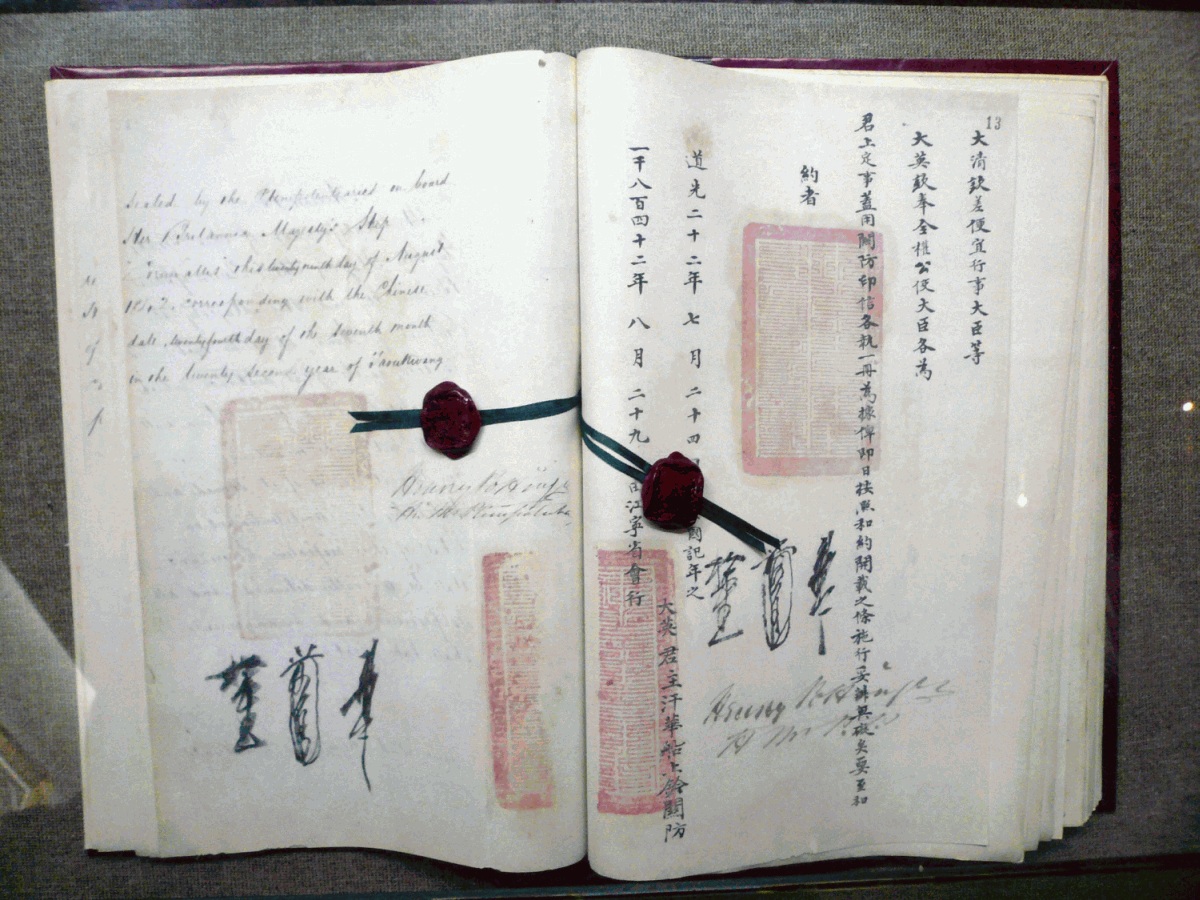 Sealed by the Plenipotentiaries on board
Her Britannic Majesty's Ship
Cornwallis this twenty ninth day of August
1842, corresponding with the Chinese
date, twenty fourth day of the seventh month
in the twenty second year of Taoukwang
Henry Pottinger
13
大清欽差便宜行事大臣等
大英欽奉全權公使大臣各為
君上定事蓋用關防印信各執一冊為據俾即日按照和約開載之條施行妥辦無礙矣要至和
約者
道光二十二年七月二十四日
國記年之
一千八百四十二年八月二十九
由江寧省會行
大英君主汗華 船上鈐關防
Henry Pottinger